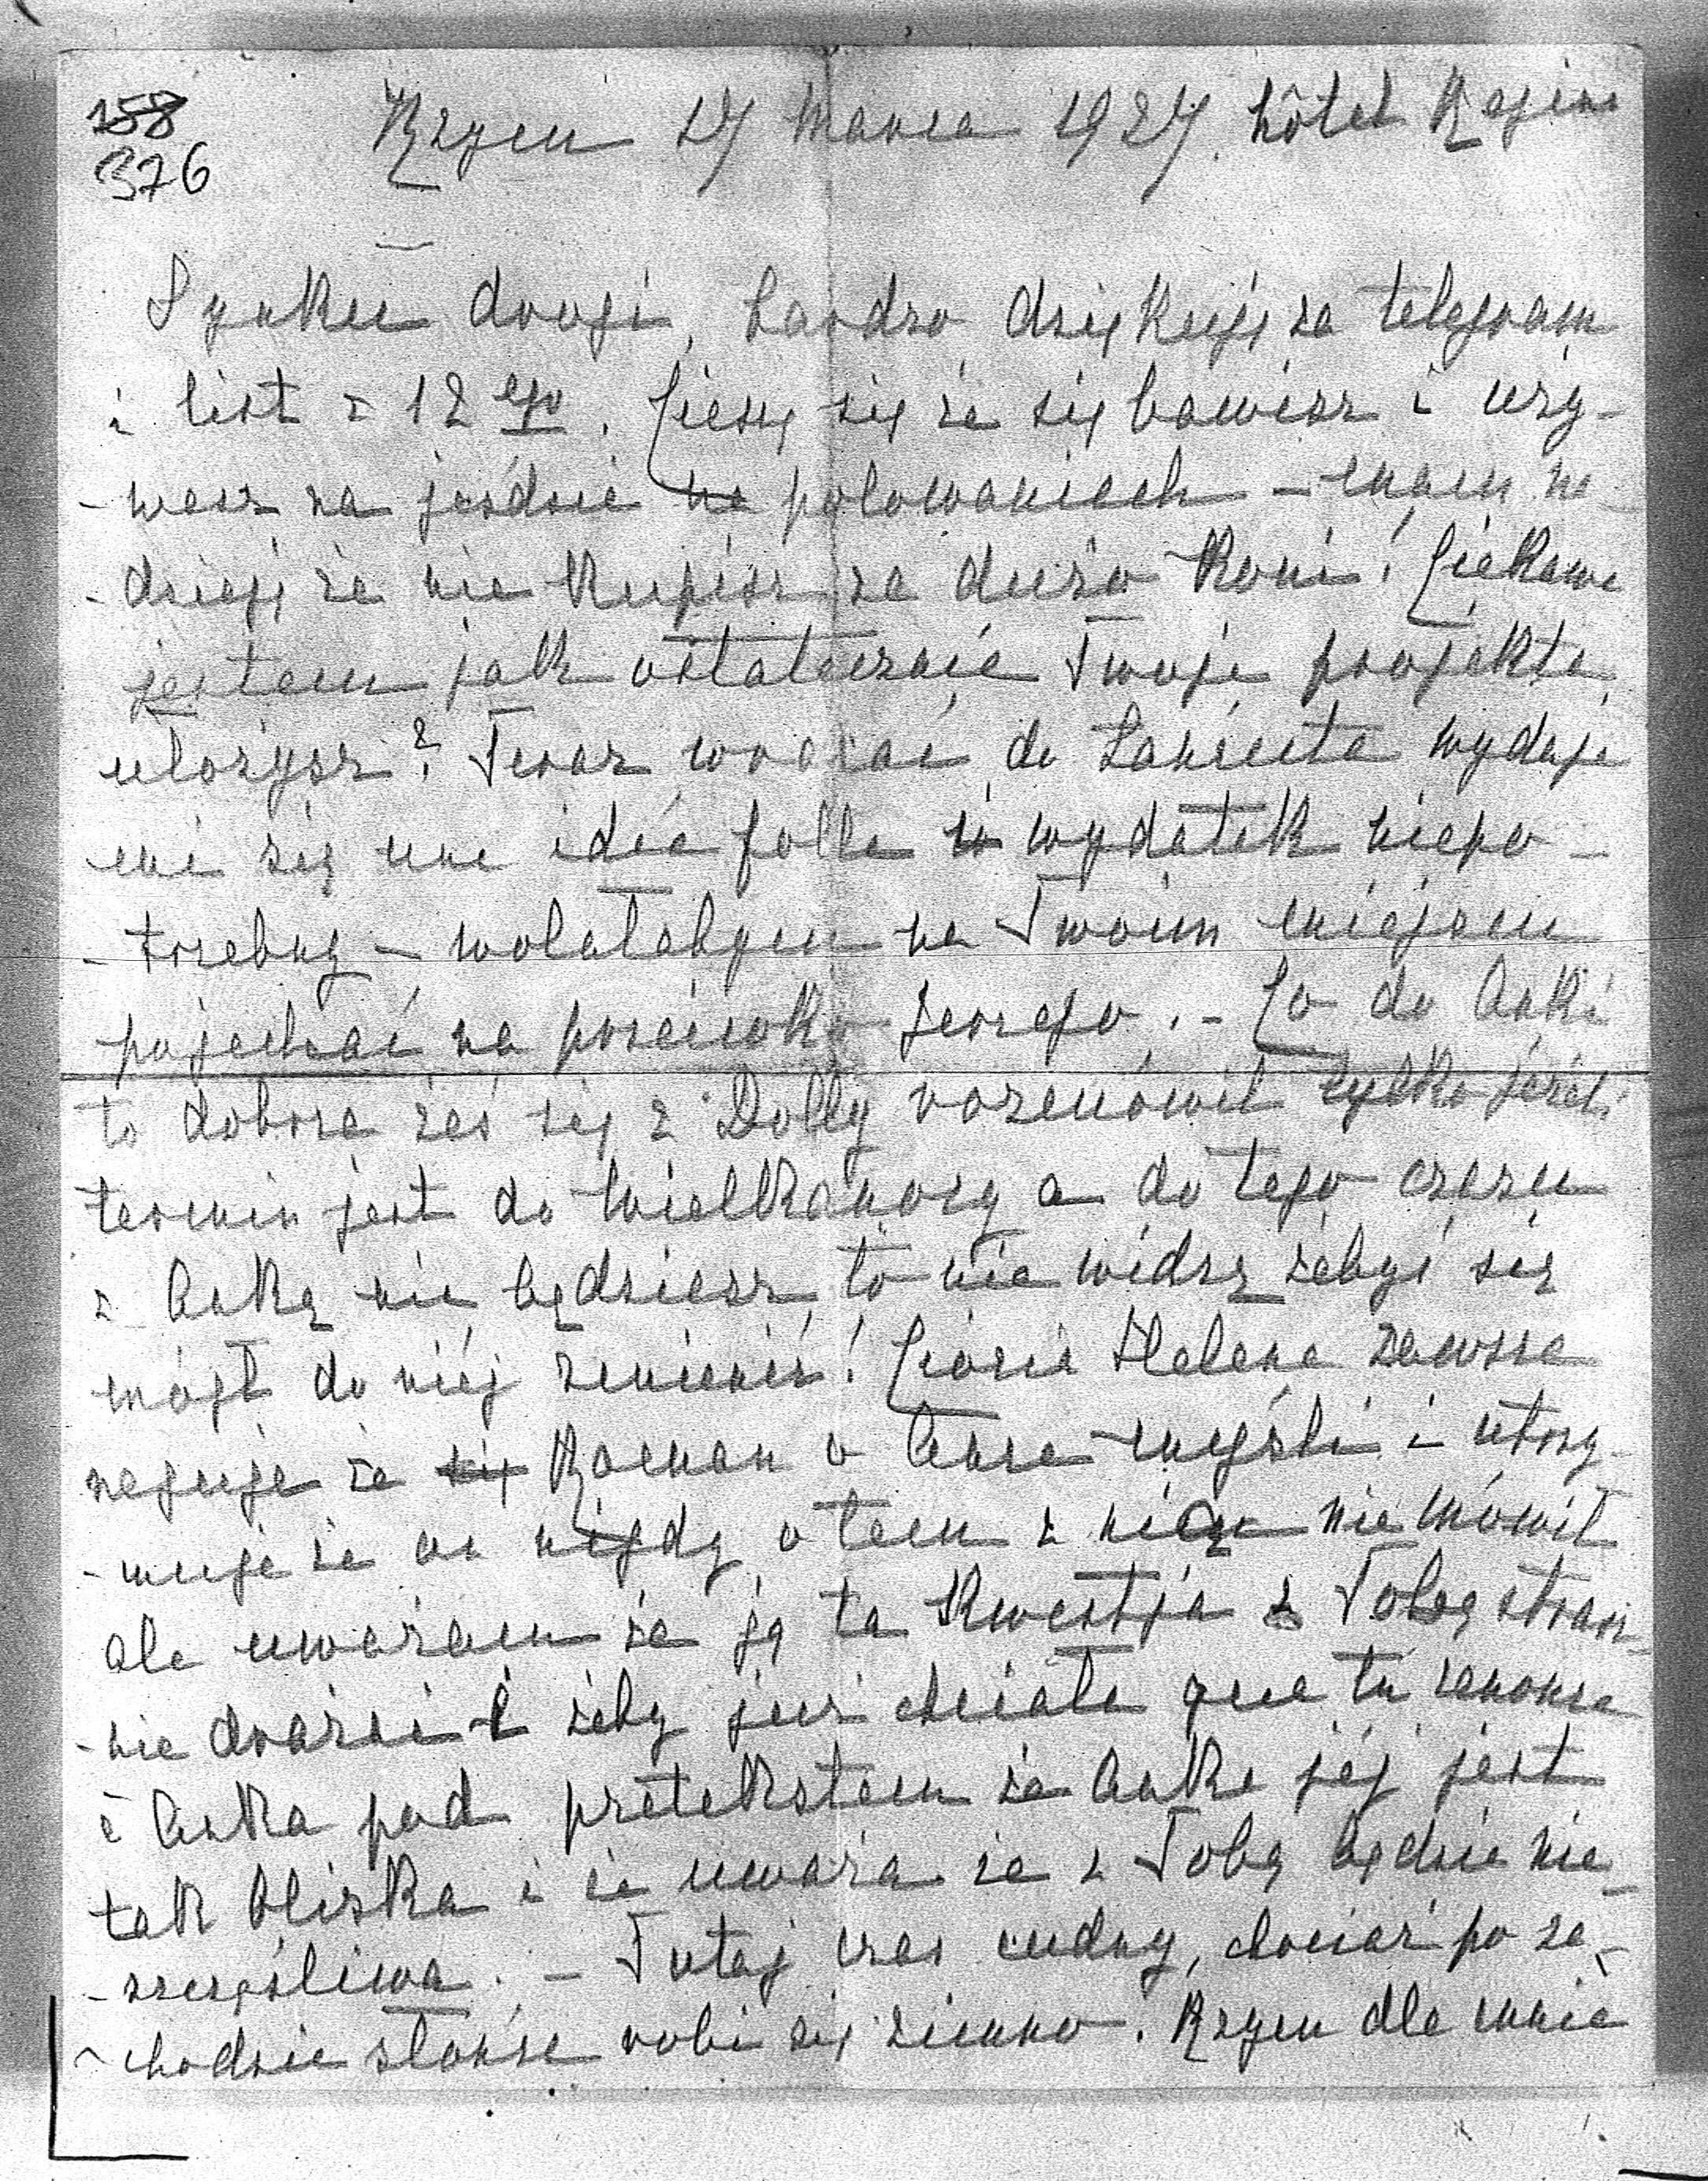 158
376
Rzym 17 marca 1927. hôtel Regina
Synku drogi, bardzo dziękuję za telegram
i list z 12 ego. Cieszę się że się bawisz i uży-
-wasz na jeździe na polowaniach – mam na-
-dzieję że nie kupisz za dużo koni! Ciekawa
jestem jak ostatecznie Twoje projekta
ułożysz? Teraz wracać do Łańcuta wydaje
mi się une idée folle i wydatek niepo-
-trzebny – wolałabym na Twoim miejscu
pojechać na Jerzego. – Co do Anki
to dobrze żeś się z Dolly rozmówił tylko jeżeli
termin jest do Wielkanocy a do tego czasu
z Anką nie będziesz, to nie widzę żebyś się
mógł do niej zmienić! Ciocia Helena zawsze
neguje że Roman o Ance myśli i utrzy-
-muje że on nigdy o tem z nią nie mówił
ale uważam że ją ta kwestja z Tobą strasz-
-nie drażni i żeby już chciała que tu renonce
à Anka pod pretekstem że Anka jej jest
tak bliska i że uważa że z Tobą będzie nie-
-szczęśliwa. – Tutaj czas cudny, chociaż po za-
-chodzie słońca robi się zimno. Rzym dla mnie